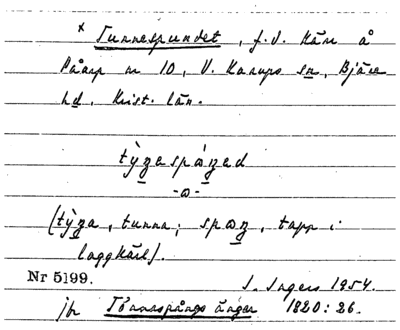 × Tunnespundet, f.d. kärr å
Påarp nr 10, V. Karups sn, Bjäre
hd, Krist. län.
tỳŋaspáŋad
-ω-
(tỳŋa, tunna; spωŋ, tapp i
laggkärl).
Nr 5199.
I. Ingers 1954.
jfr Tönnespångs ängar 1820: 26.